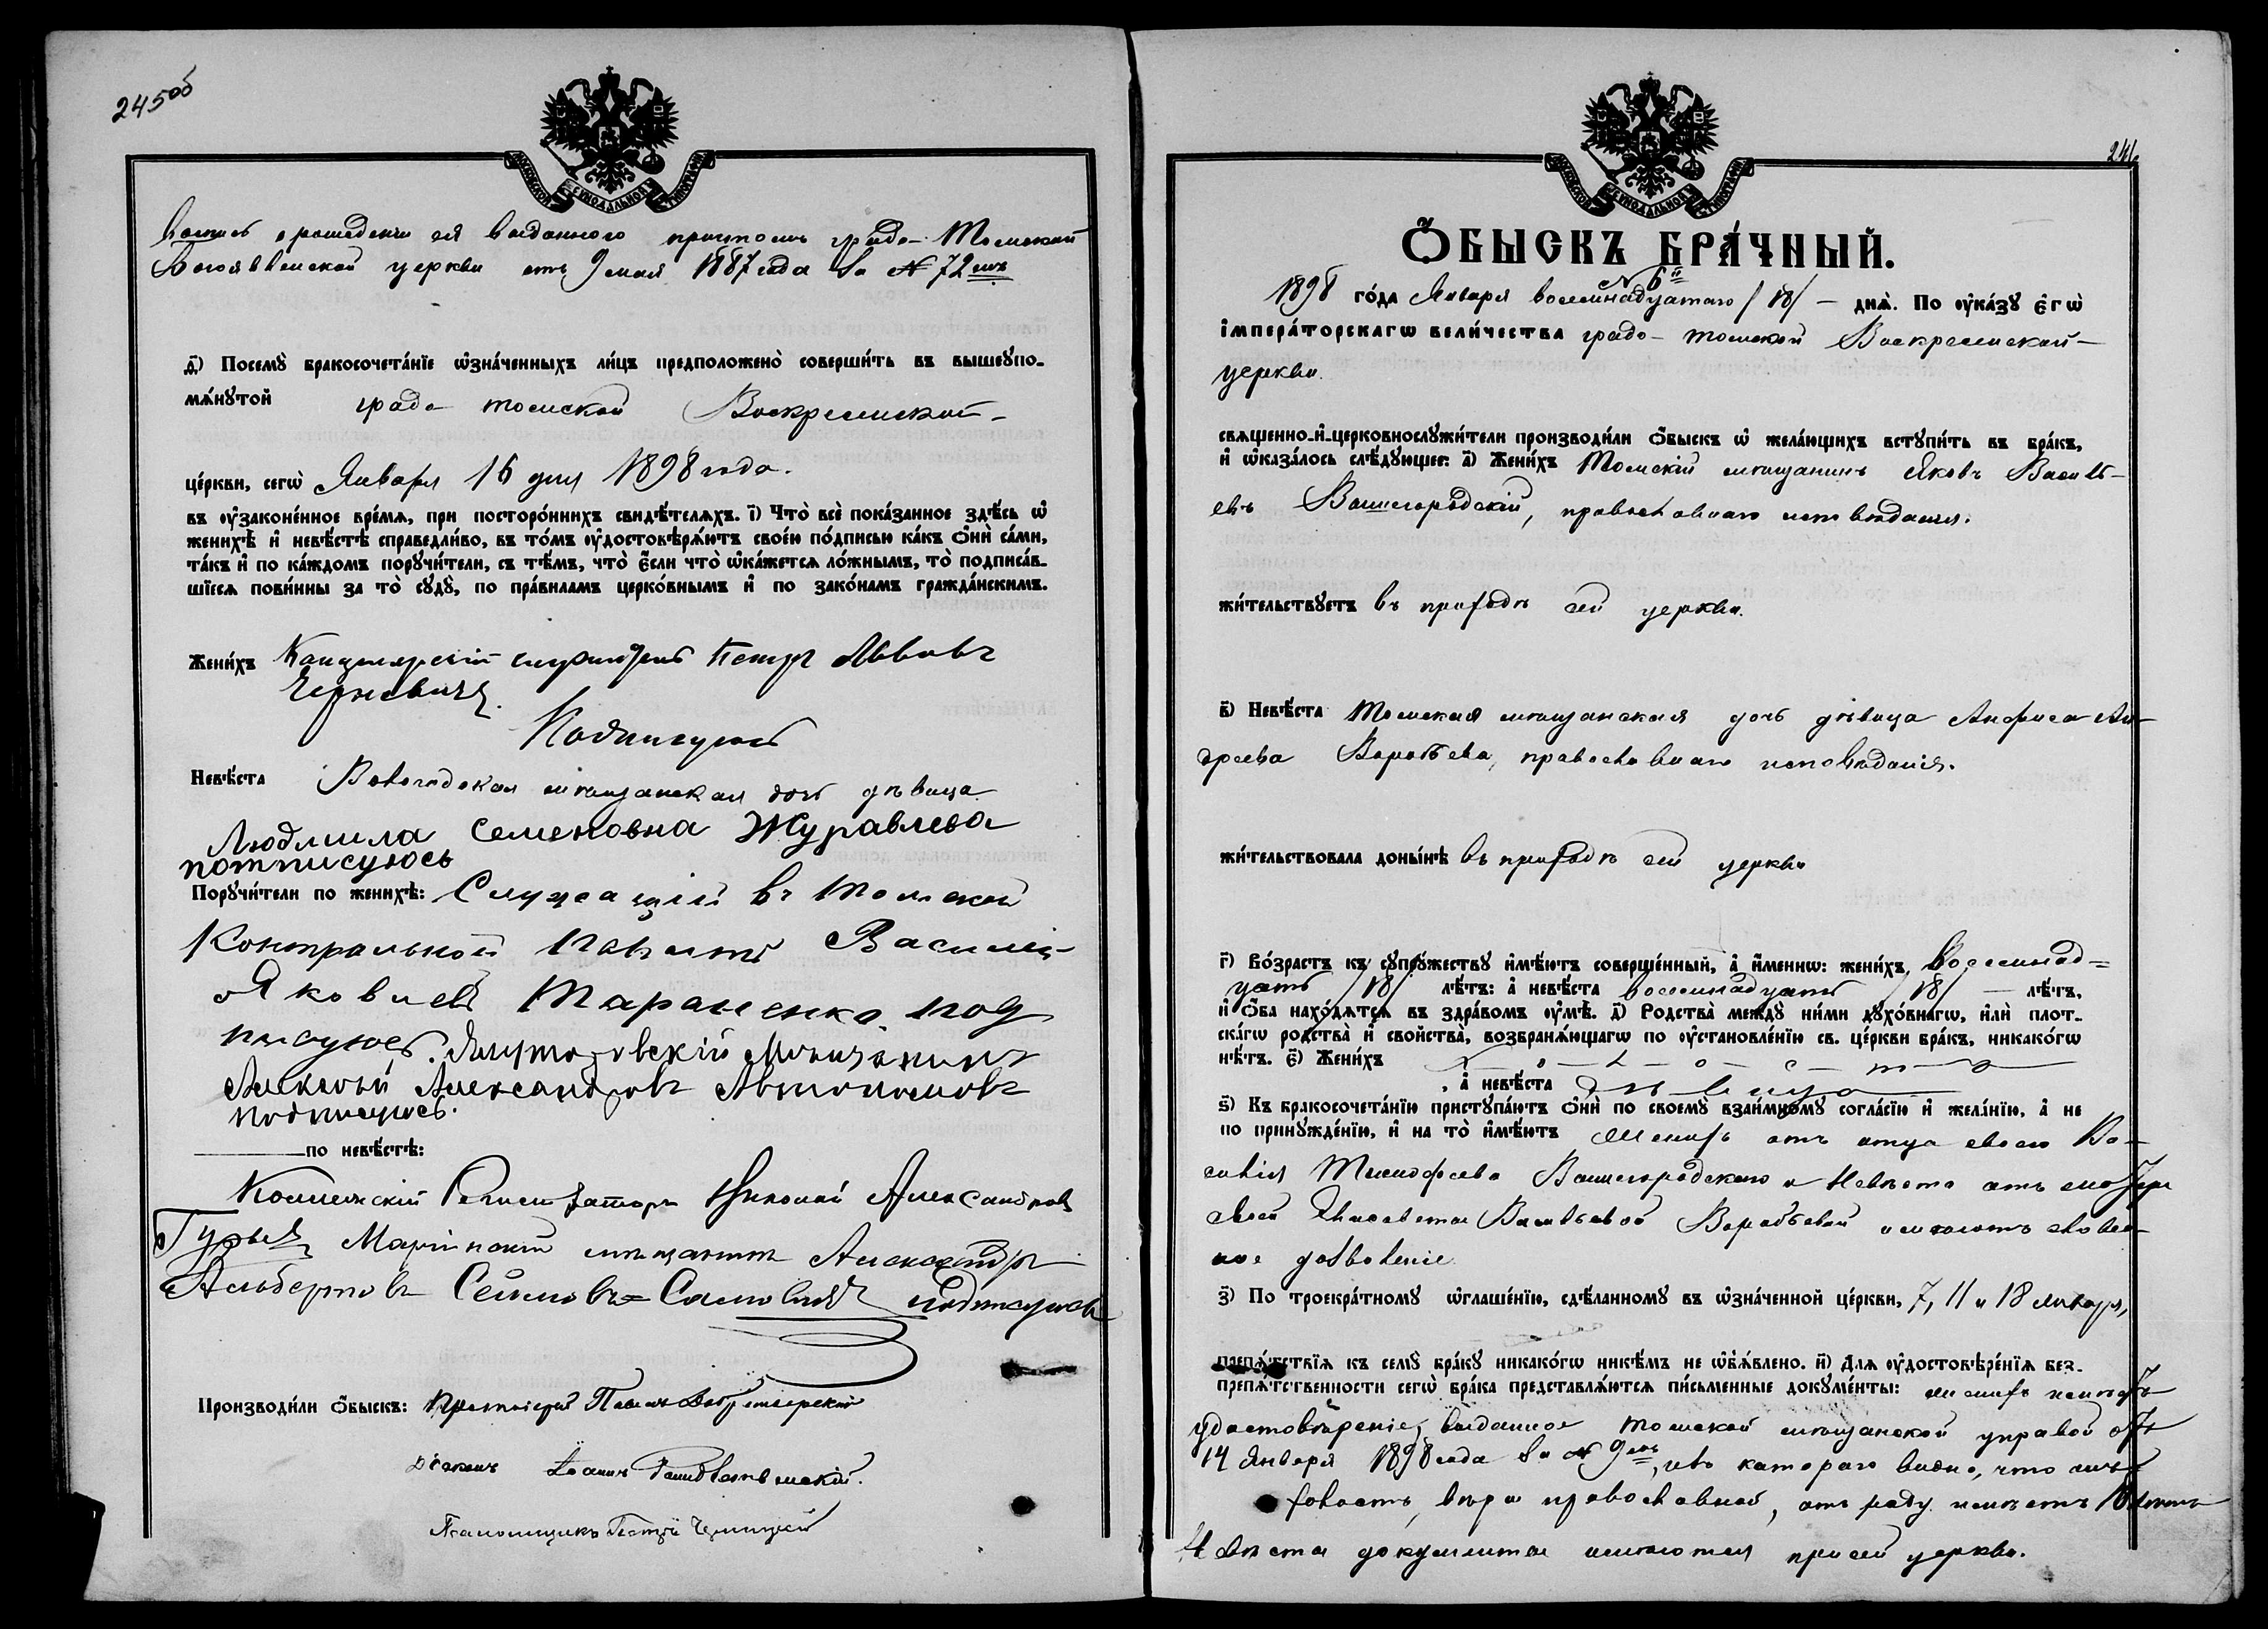 245об
МОСКОВСКОЙ СѴНОДАЛЬНОЙ ТИПОГРАФІИ
запись о рождении ея выданного причтомъ градо-Томской
Богоявленской церкви отъ 9 мая 1887 года за № 72мъ
д҃) Посемꙋ̀ бракосочета́нїе ѡ҆зна́ченныхъ ли́цъ предположено̀ соверши́ть въ вышеꙋпо-
мѧ́нꙋтой градо-томской Воскресенской-
це́ркви, сегѡ̀ Января 16 дня 1898 года.
въ ᲂу҆законе́нное вре́мѧ, при посторо́ннихъ свидѣ́телѧхъ. і҃) Что̀ всѐ пока́занное здѣ́сь ѡ҆
женихѣ̀ и҆ невѣ́стѣ справедли́во, въ то́мъ ᲂу҆достовѣрѧ́ютъ свое́ю по́дписью ка́къ ѻ҆нѝ са́ми,
та́къ и҆ по ка́ждомъ порꙋчи́тели, съ тѣ́мъ, что̀ є҆́сли что̀ ѡ҆ка́жетсѧ ло́жнымъ, то̀ подписа́в-
шїесѧ пови́нны за то̀ сꙋдꙋ̀, по пра́виламъ церко́внымъ и҆ по зако́намъ гражда́нскимъ.
Жени́хъ Канцелярскій служитель Петръ Львовъ
Черневичъ.
Подписуюсь
Невѣ́ста Вологодская мѣщанская дочь дѣвица
Людмила Семеновна Журавлева
потписуюсь
Порꙋчи́тели по женихѣ̀: Служащій въ Томской
Контрольной Палатѣ Василій
Яковлевъ Тараненко. под
писуюсь. Ялуторовскій Мѣщанинъ
Алексѣй Александровъ Автономовъ
подписуюсь.
по невѣ́стѣ:
Коллежскій Регистраторъ Николай Александровъ
Гурьевъ Маріинскій мѣщанинъ Александръ
Альбертовъ Сеймовъ=Самовичъ подписуюсь
Производи́ли ѻ҆́быскъ: Протоіерей Павелъ
Діаконъ Іоаннъ
Псаломщикъ
246
МОСКОВСКОЙ СѴНОДАЛЬНОЙ ТИПОГРАФІИ
Ѻ҆́БЫСКЪ БРА́ЧНЫЙ.
№ 6й
1898 го́да Января восемнадцатаго /18/ - днѧ̀. По ᲂу҆ка́зꙋ є҆гѡ̀
і҆мпера́торскагѡ вели́чества градо-томской Воскресенской-
церкви.
свѧщенно-и҆-церковнослꙋжи́тели производи́ли ѻ҆́быскъ ѡ҆ жела́ющихъ встꙋпи́ть въ бра́къ,
и҆ ѡ҆каза́лось слѣ́дꙋющее: а҃) Жени́хъ Томскій мѣщанинъ Яковъ Василь-
евъ Вышегородскій, православнаго исповѣданія.
жи́тельствꙋетъ въ приходѣ сей церкви.
в҃) Невѣ́ста Томская мѣщанская дочь дѣвица Анфиса Ан-
дреева Воробьева, православнаго исповѣданія.
жи́тельствовала доны́нѣ въ приходѣ сей церкви
г҃) Во́зрастъ къ сꙋпрꙋ́жествꙋ и҆мѣ́ютъ соверше́нный, а҆ и҆́меннѡ: жени́хъ, Восемнад=
цать /18/ лѣ́тъ: а҆ невѣ́ста восемнадцать /18/ - лѣ́тъ,
и҆ ѻ҆́ба нахо́дѧтсѧ въ здра́вомъ ᲂу҆мѣ̀. д҃) Родства̀ междꙋ̀ ни́ми дꙋхо́внагѡ, и҆лѝ плот-
ска́гѡ родства̀ и҆ свойства̀, возбранѧ́ющагѡ по ᲂу҆становле́нїю св. це́ркви бра́къ, никако́гѡ
нѣ́тъ. є҃) Жени́хъ х - о - л - о - с - т
, а҆ невѣ́ста дѣвица
ѕ҃) Къ бракосочета́нїю пристꙋпа́ютъ ѻ҆нѝ по своемꙋ̀ взаи́мномꙋ согла́сїю и҆ жела́нїю, а҆ не
по принꙋжде́нїю, и҆ на то̀ и҆мѣ́ютъ Женихъ отъ отца своего Ва-
силія Тимофеева Вышегородскаго и Невѣста отъ матери
своей Елисаветы Васильевой Воробьевой имѣютъ словес-
ное дозволеніе
з҃) По троекра́тномꙋ ѡ҆глаше́нїю, сдѣ́ланномꙋ въ ѡ҆зна́ченной це́ркви, 7, 11 и 18 января,
препѧ́тствїѧ къ семꙋ̀ бра́кꙋ никако́гѡ никѣ́мъ не ѡ҆бъѧ́влено. и҃) Для ᲂу҆достовѣре́нїѧ без-
препѧ́тственности сегѡ̀ бра́ка представлѧ́ютсѧ пи́сьменные докꙋме́нты: женихъ имѣетъ
удостовѣреніе, выданное Томской мѣщанской управой отъ
14 Января 1898 года за № 9мъ, изъ котораго видно, что онъ
холостъ, вѣры православной, отъ роду имѣетъ 18 лѣтъ
Невѣста документы имѣются при сей церкви.